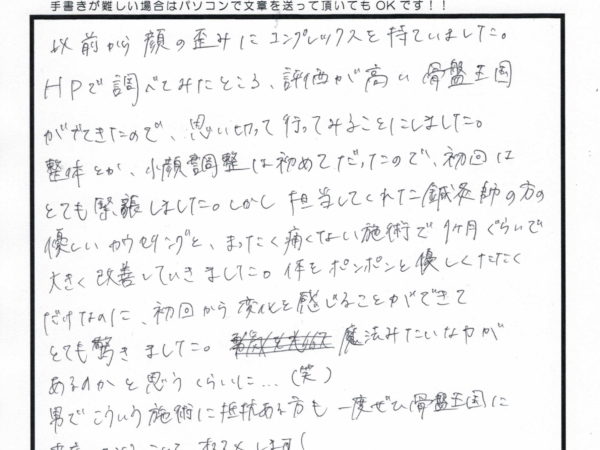 手書きが難しい場合はパソコンで文章を送って頂いてもOKです！！
以前から顔の歪みにコンプレックスを持ていました。
HPで調べてみたところ、評価が高い骨盤王国
がでてきたので、思い切って行ってみることにしました。
整体とか、小顔調整は初めてだったので、初回は
とても緊張しました。しかし担当してくれた鍼灸師の方の
優しいカウセリングと、まったく痛くない施術で1ヶ月ぐらいで
大きく改善していきました。体をポンポンと優しくたたく
だけなのに、初回から変化を感じることができて
とても驚きました。魔法みたいな力が
あるのかと思うくらいに…(笑)
男でこういう施術に抵抗ある方も一度ぜひ骨盤王国に